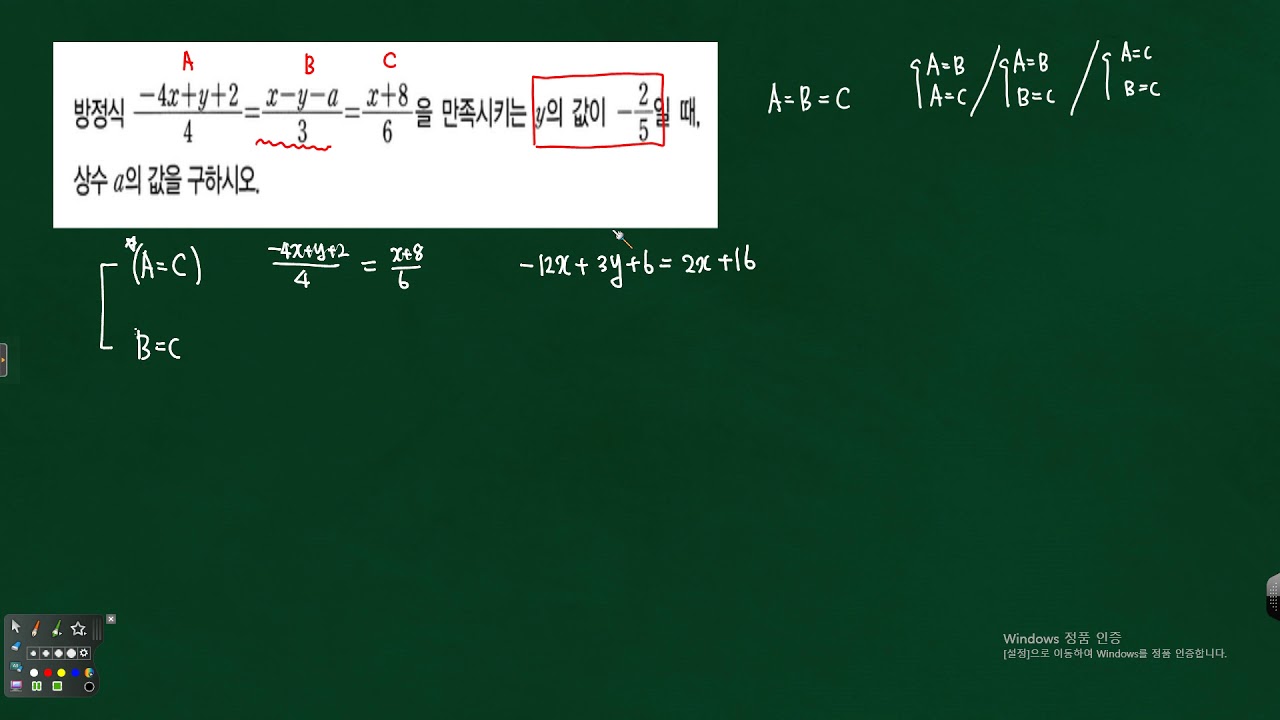 A B C
방정식 \frac{-4x+y+2}{4}=\frac{x-y-a}{3}=\frac{x+8}{6}을 만족시키는 y의 값이 -\frac{2}{5}일 때,
상수 a의 값을 구하시오.
A=B=C
A=B / A=B / A=C
A=C B=C B=C
(A=C) \frac{-4x+y+2}{4} = \frac{x+8}{6} -12x+3y+6=2x+16
B=C
Windows 정품 인증
[설정]으로 이동하여 Windows를 정품 인증합니다.